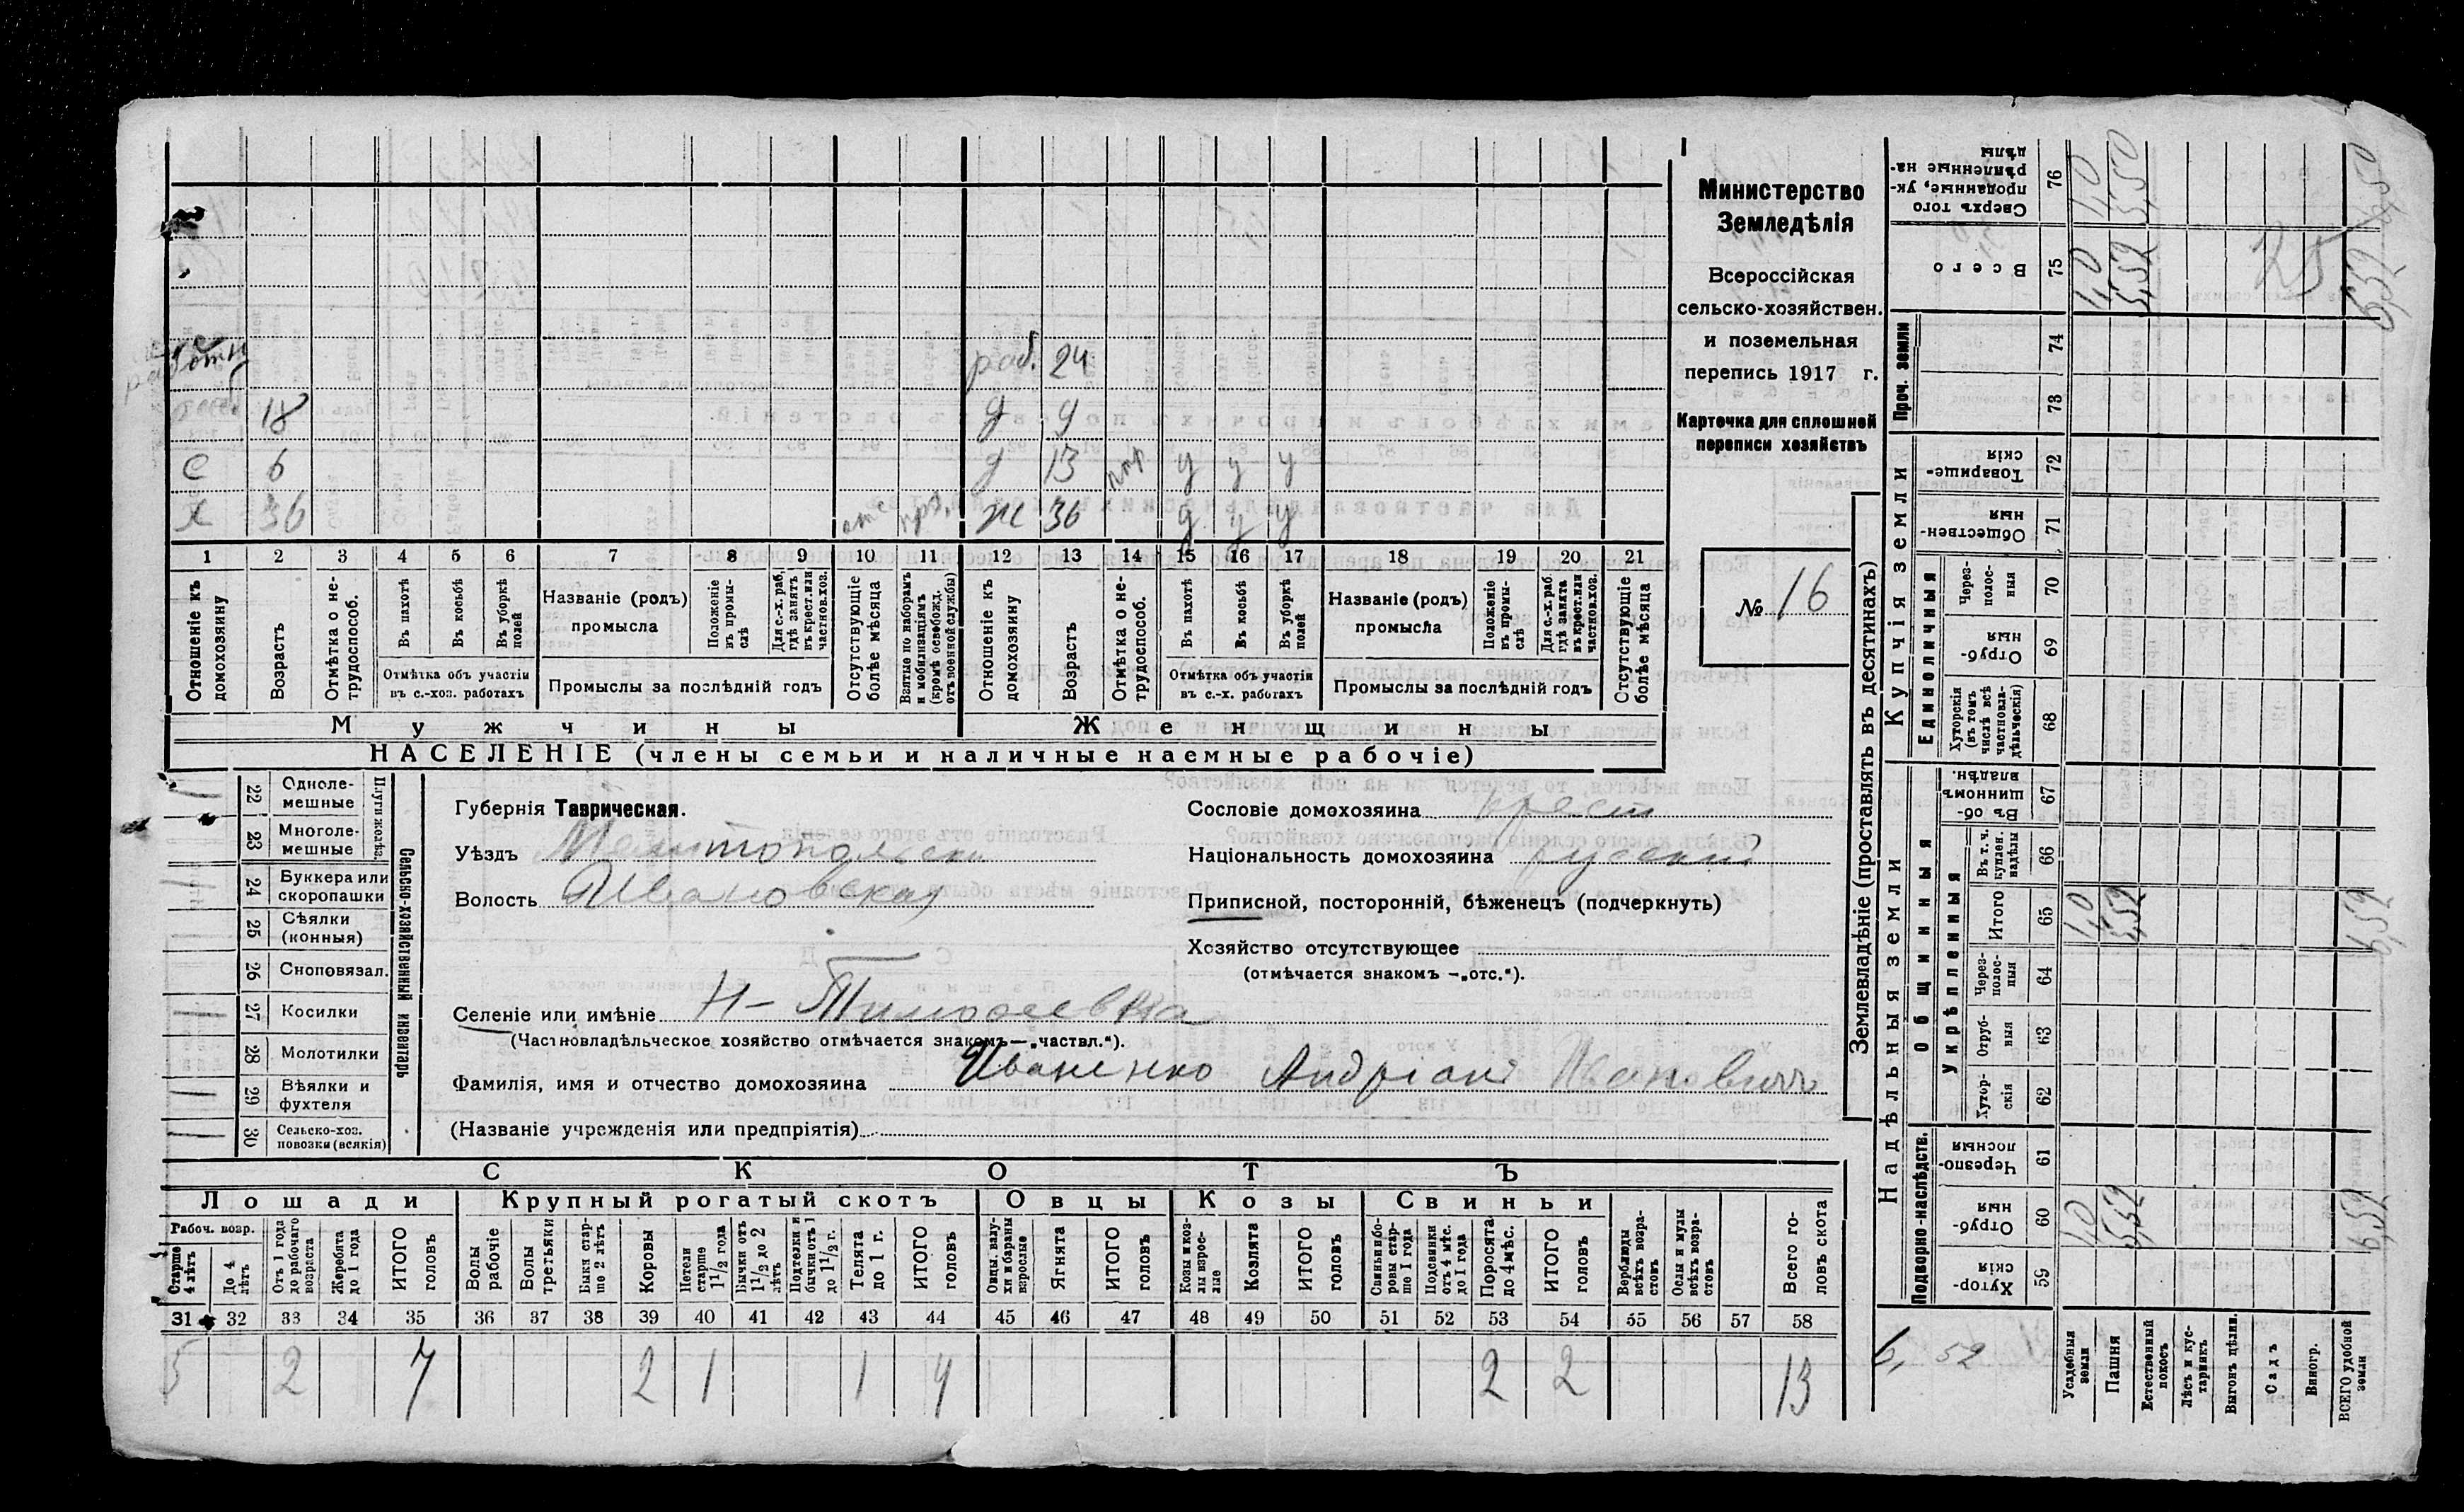 раб. 24
18 д 9
С 6 д 13 у у у
Х 36 отс ж 36 у у у
1 2 3 4 5 6 7 8 9 10 11 12 13 14 15 16 17 18 19 20 21
Отношеніе къ домохозяину
Возрастъ
Отмѣтка о нетрудоспособ.
Въ пахотѣ
Въ косьбѣ
Въ уборкѣ полей
Отмѣтка объ участіи
въ с.-хоз. работахъ
Названіе (родъ)
промысла
Положеніе въ промыслѣ
Для с.-х. раб. гдѣ занятъ въ крест. или частнов. хоз.
Промыслы за послѣдній годъ
Отсутствующіе болѣе мѣсяца
Взятые по наборамъ и мобилизаціямъ (кромѣ освобожд. отъ военной службы)
Отношеніе къ домохозяину
Возрастъ
Отмѣтка о нетрудоспособ.
Въ пахотѣ
Въ косьбѣ
Въ уборкѣ полей
Отмѣтка объ участіи
въ с.-х. работахъ
Названіе (родъ)
промысла
Положеніе въ промыслѣ
Для с.-х. раб. гдѣ занята въ крест. или частнов. хоз.
Промыслы за послѣдній годъ
Отсутствующіе болѣе мѣсяца
Мужчины Женщины
НАСЕЛЕНІЕ (члены семьи и наличные наемные рабочіе)
Министерство
Земледѣлія
Всероссійская
сельско-хозяйствен.
и поземельная
перепись 1917 г.
Карточка для сплошной
переписи хозяйствъ
№ 16
22 Однолемешные
23 Многолемешные
Плуги желѣз.
24 Буккера или скоропашки
25 Сѣялки (конныя)
26 Сноповязал.
27 Косилки
28 Молотилки
29 Вѣялки и фухтеля
30 Сельско-хоз. повозки (всякія)
Сельско-хозяйственный инвентарь
Губернія Таврическая.
Уѣздъ Мелитопольскій
Волость Ивановская
Селеніе или имѣніе Н-Тимофеевка
(Частновладѣльческое хозяйство отмѣчается знакомъ—„частвл.“).
Фамилія, имя и отчество домохозяина Иваненко Андріанъ Ивановичъ
(Названіе учрежденія или предпріятія)
Сословіе домохозяина крест
Національность домохозяина русскій
Приписной, посторонній, бѣженецъ (подчеркнуть)
Хозяйство отсутствующее
(отмѣчается знакомъ —„отс.“).
СКОТЪ
Лошади Крупный рогатый скотъ Овцы Козы Свиньи
Рабоч. возр.
Старше 4 лѣтъ
До 4 лѣтъ
Отъ 1 года до рабочаго возраста
Жеребята до 1 года
ИТОГО головъ
Волы рабочіе
Волы третьяки
Быки старше 2 лѣтъ
Коровы
Нетели старше 1 1/2 года
Бычки отъ 1 1/2 до 2 лѣтъ
Подтелки и бычки отъ 1 до 1 1/2 г.
Телята до 1 г.
ИТОГО головъ
Овцы валухи и бараны взрослые
Ягнята
ИТОГО головъ
Козы и козлы взрослые
Козлята
ИТОГО головъ
Свиньи боровы старше 1 года
Подсвинки отъ 4 мѣс. до 1 года
Поросята до 4 мѣс.
ИТОГО головъ
Верблюды всѣхъ возрастовъ
Ослы и мулы всѣхъ возрастовъ
Всего головъ скота
31 32 33 34 35 36 37 38 39 40 41 42 43 44 45 46 47 48 49 50 51 52 53 54 55 56 57 58
5 2 7 2 1 1 4 2 2 13
Землевладѣніе (проставлять въ десятинахъ)
Надѣльныя земли
Купчія земли
Проч. земли
Подворно-наслѣдств.
Общинныя
Укрѣпленныя
Единоличныя
Хуторскія 59
Отрубныя 60 40 5,52 5,52
Черезполосныя 61
Хуторскія 62
Отрубныя 63
Черезполосныя 64
Итого 65 40 5,52
Въ т. ч. куплен. надѣлы 66
Въ общинномъ владѣн. 67
Хуторскія (въ томъ числѣ всѣ частновладѣльческія) 68
Отрубныя 69
Черезполосныя 70
Общественныя 71
Товарищескія 72
73
74
Всего 75 40 5,52
Сверхъ того проданные, укрѣпленные надѣлы 76 40
6,52
Усадебныя земли
Пашня
Естественный покосъ
Лѣсъ и кустарникъ
Выгонъ цѣлин.
Садъ
Виногр.
ВСЕГО удобной земли